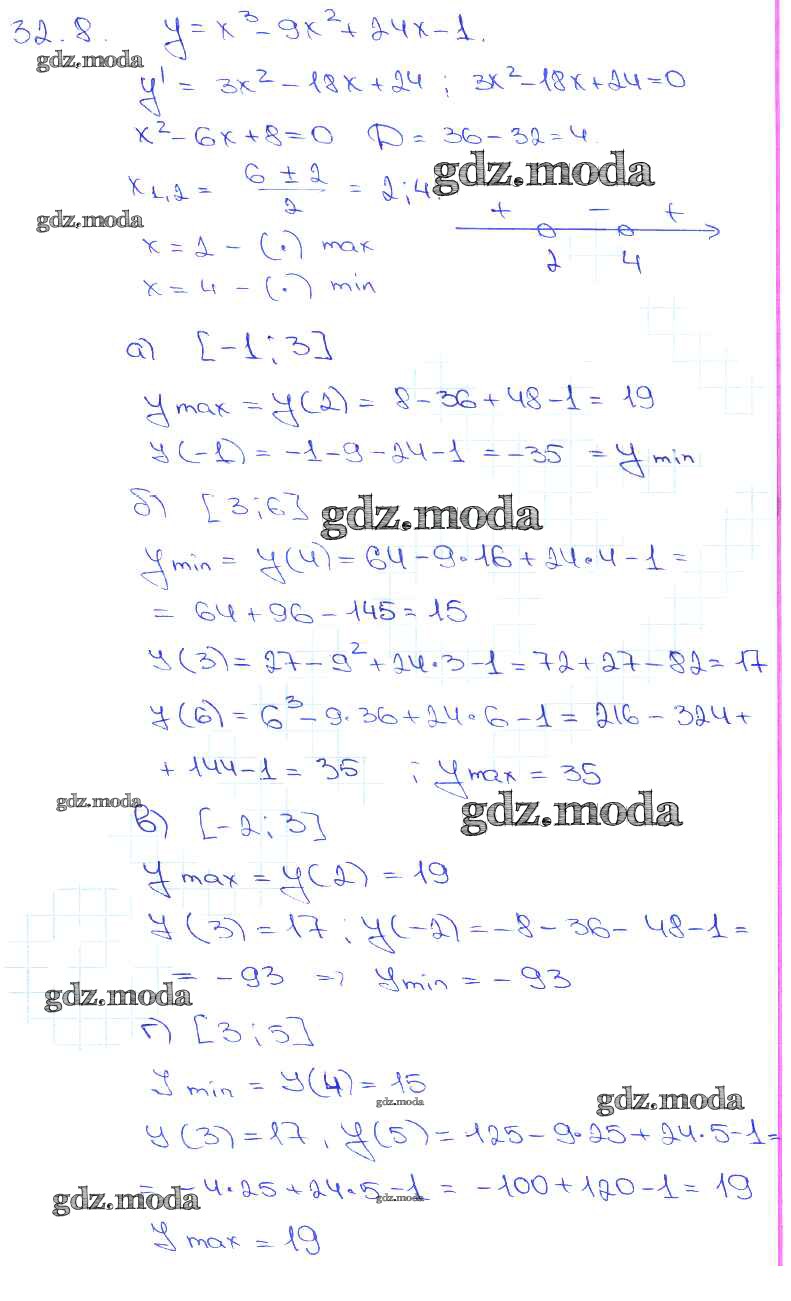 32.8. y = x³ - 9x² + 24x - 1.
gdz.moda
y' = 3x² - 18x + 24 ; 3x² - 18x + 24 = 0
x² - 6x + 8 = 0 D = 36 - 32 = 4
gdz.moda
x₁,₂ = (6 ± 2)/2 = 2; 4.
gdz.moda
+ - +
x = 2 - (·) max
2 4
x = 4 - (·) min
а) [-1; 3]
y max = y(2) = 8 - 36 + 48 - 1 = 19
y(-1) = -1 - 9 - 24 - 1 = -35 = y min
б) [3; 6]
gdz.moda
y min = y(4) = 64 - 9·16 + 24·4 - 1 =
= 64 + 96 - 145 = 15
y(3) = 27 - 9² + 24·3 - 1 = 72 + 27 - 82 = 17
y(6) = 6³ - 9·36 + 24·6 - 1 = 216 - 324 +
+ 144 - 1 = 35 ; y max = 35
gdz.moda
gdz.moda
в) [-2; 3]
y max = y(2) = 19
y(3) = 17 ; y(-2) = -8 - 36 - 48 - 1 =
= -93 => y min = -93
gdz.moda
г) [3; 5]
y min = y(4) = 15
gdz.moda
gdz.moda
y(3) = 17, y(5) = 125 - 9·25 + 24·5 - 1 =
= -4·25 + 24·5 - 1 = -100 + 120 - 1 = 19
gdz.moda
gdz.moda
y max = 19